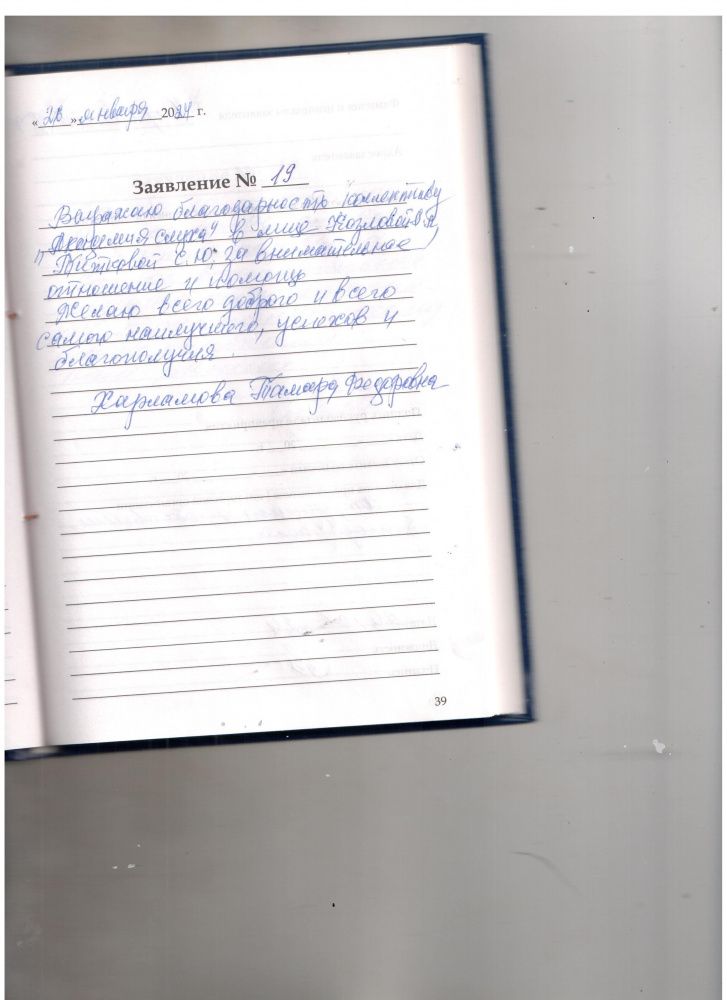 « 28 » января 2024 г.
Заявление № 19
Выражаю благодарность коллективу
"Академия слуха" в лице Козловой О.А
С.Ю, за внимательное
отношение и помощь
Желаю всего доброго и всего
самого наилучшего, успехов и
благополучия.
Харламова Тамара Федоровна
39